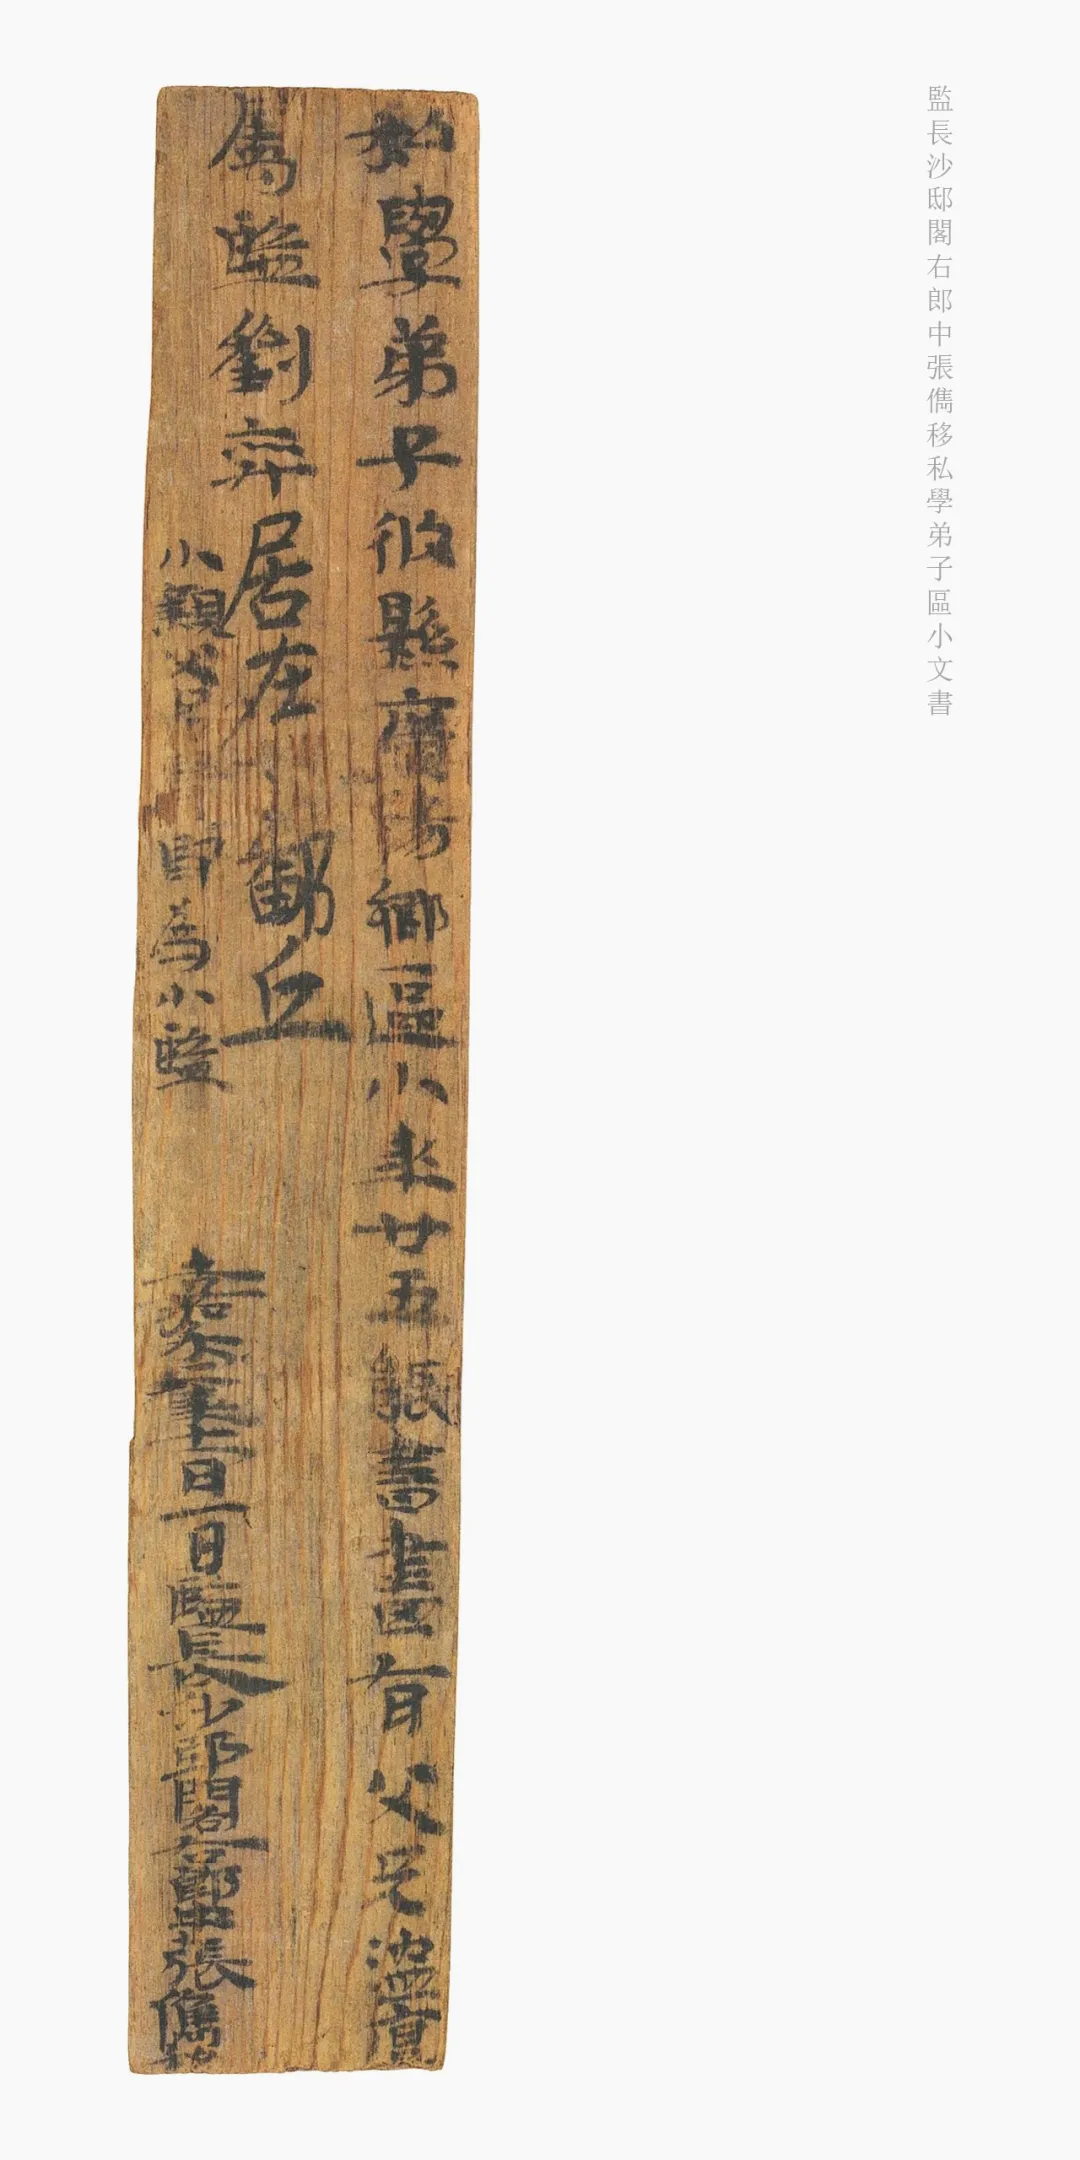 監長沙邸閣右郎中張儁移私學弟子區小文書
私學弟子攸縣廣陽鄉區小年廿五能書畫有父兄溫直
屬監劉弈居在 丘
小 即為小監
嘉禾二年十一月一日監長沙邸閣右郎中張儁移